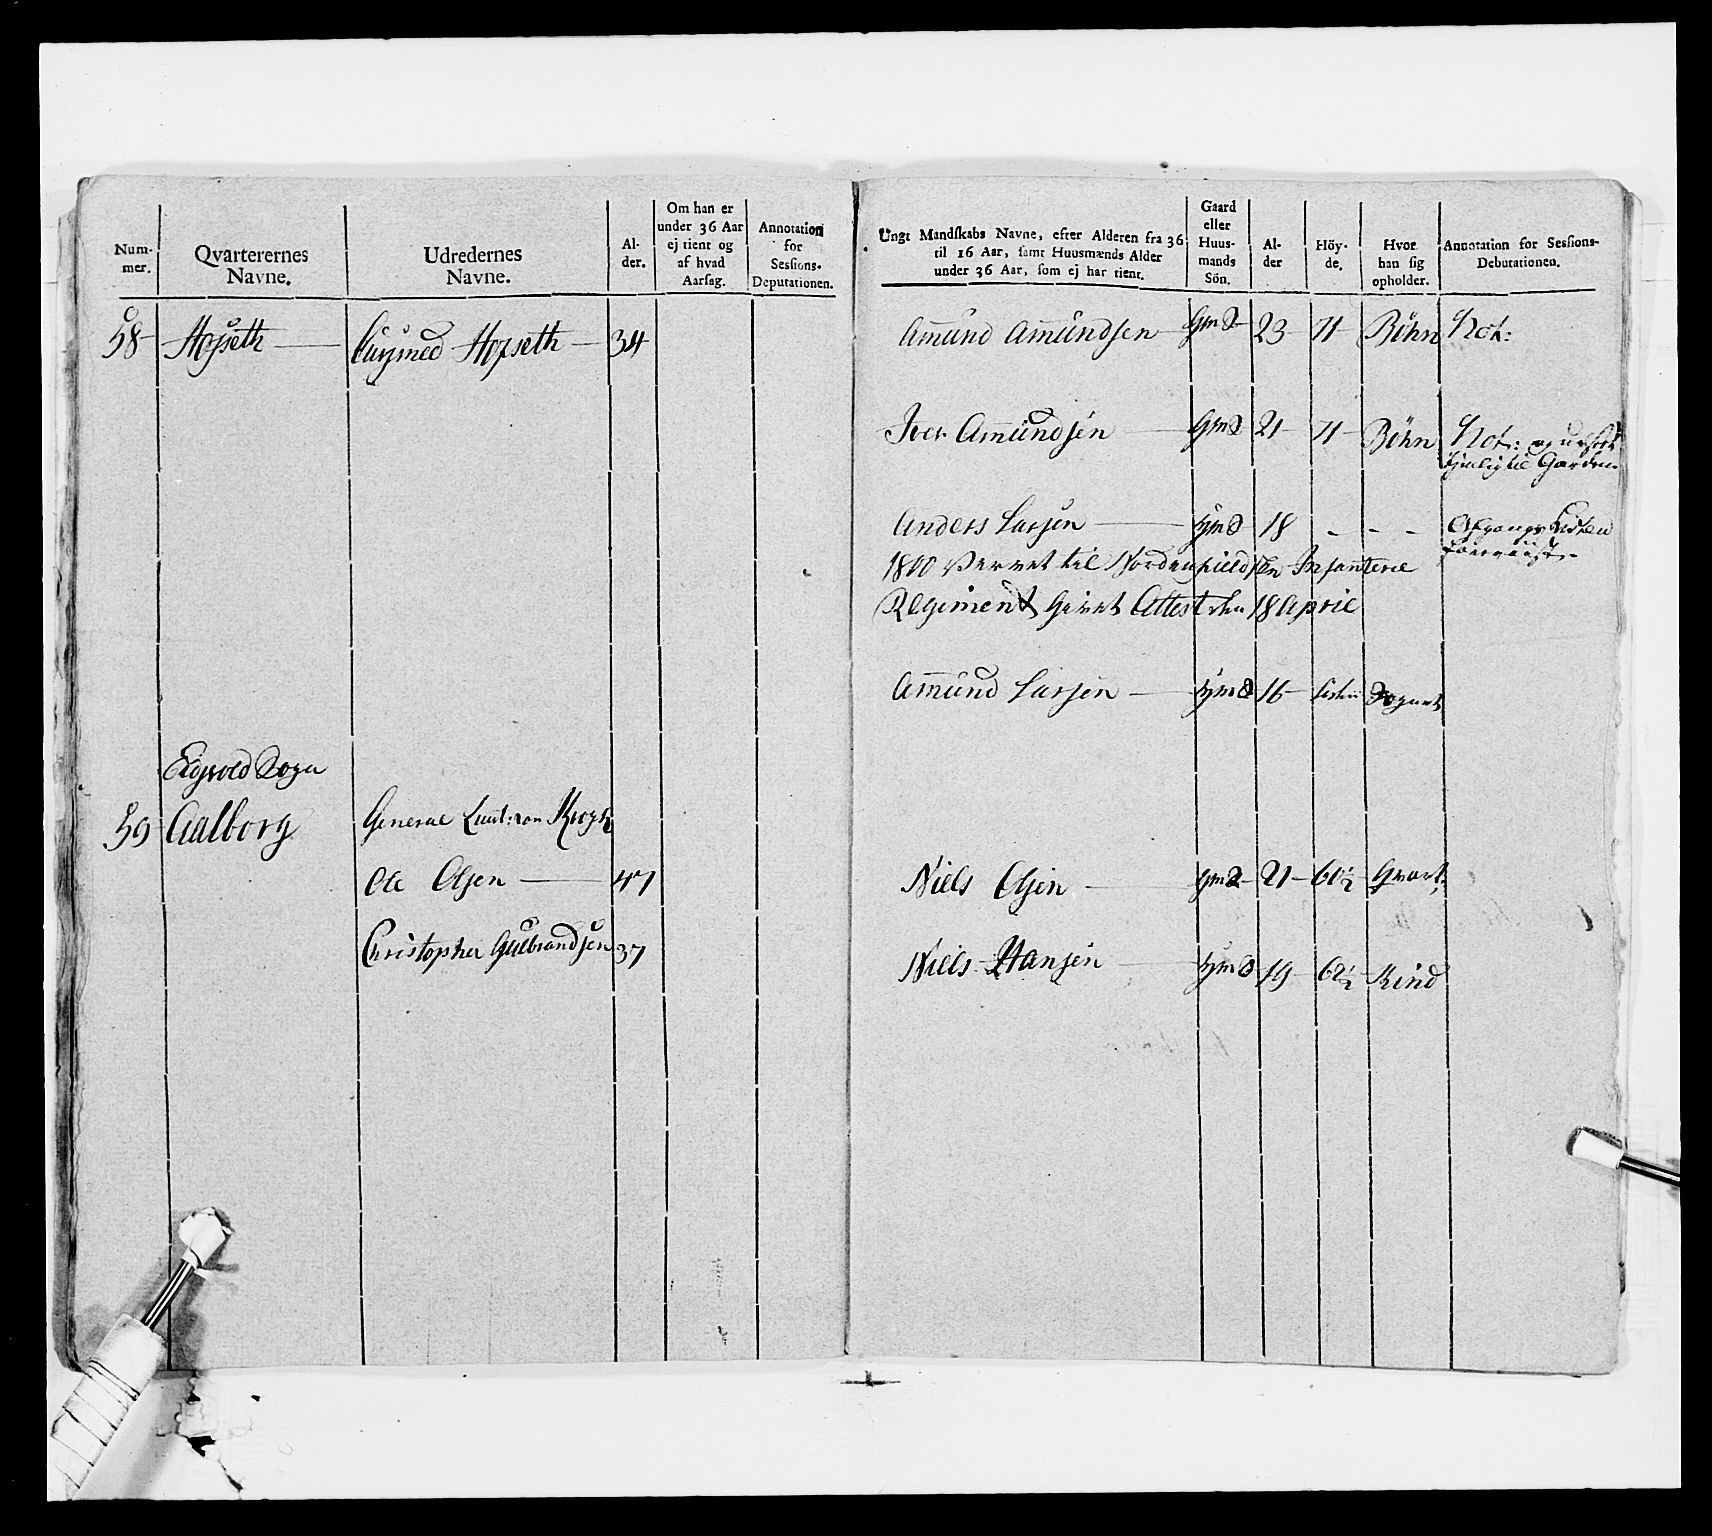 Num-
mer.
Qvarterernes
Navne.
Udredernes
Navne.
Al-
der.
Om han er
under 36 Aar
ej tient og
af hvad
Aarsag.
Annotation
for
Sessions-
Deputationen.
58 Hofseth 34
Hofseth
Eidsvold Sogn
59 Aalborg General Lieut: von Krogh
Ole Olsen 47
Christopher Gulbrandsen 37
Ungt Mandskabs Navne, efter Alderen fra 36
til 16 Aar, samt Huusmænds Alder
under 36 Aar, som ej har tient.
Gaard
eller
Huus-
mands
Sön.
Al-
der
Höy-
de.
Hvor
han sig
opholder.
Annotation for Sessions-
Debutationen.
Amund Amundsen 23 71 Böhn Not:
Iver Amundsen 21 71 Böhn Not:
til Garden
Anders Larsen 18 - - -
1800 til Nordenfieldsken Infanterie
Regiment givet Attest den 18 April
Amund Larsen 16
Niels Olsen 21 60½ Qvart:
Niels Hansen 19 62½ Rind